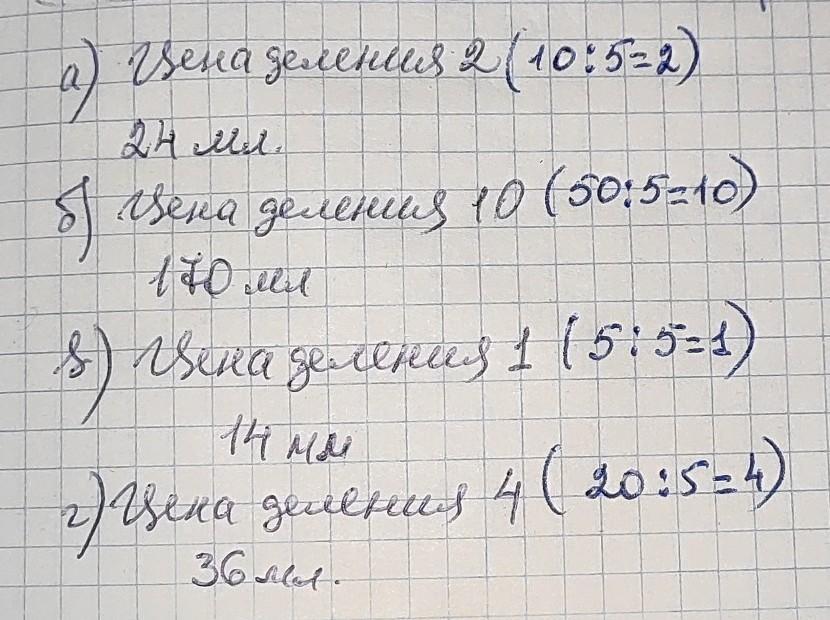 а) Цена деления 2 (10:5=2)
24 мл.
б) Цена деления 10 (50:5=10)
170 мл
в) Цена деления 1 (5:5=1)
14 мл
г) Цена деления 4 (20:5=4)
36 мл.